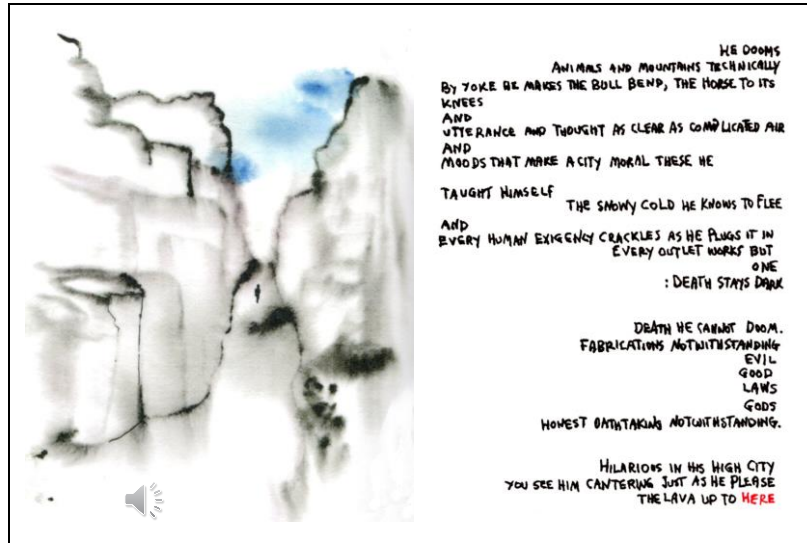 HE DOOMS
ANIMALS AND MOUNTAINS TECHNICALLY
BY YOKE HE MAKES THE BULL BEND, THE HORSE TO ITS
KNEES
AND
UTTERANCE AND THOUGHT AS CLEAR AS COMPLICATED AIR
AND
MOODS THAT MAKE A CITY MORAL THESE HE
TAUGHT HIMSELF
THE SNOWY COLD HE KNOWS TO FLEE
AND
EVERY HUMAN EXIGENCY CRACKLES AS HE PLUGS IT IN
EVERY OUTLET WORKS BUT
ONE
: DEATH STAYS DARK
DEATH HE CANNOT DOOM.
FABRICATIONS NOTWITHSTANDING
EVIL
GOOD
LAWS
GODS
HONEST OATHTAKING NOTWITHSTANDING.
HILARIOUS IN HIS HIGH CITY
YOU SEE HIM CANTERING JUST AS HE PLEASE
THE LAVA UP TO HERE